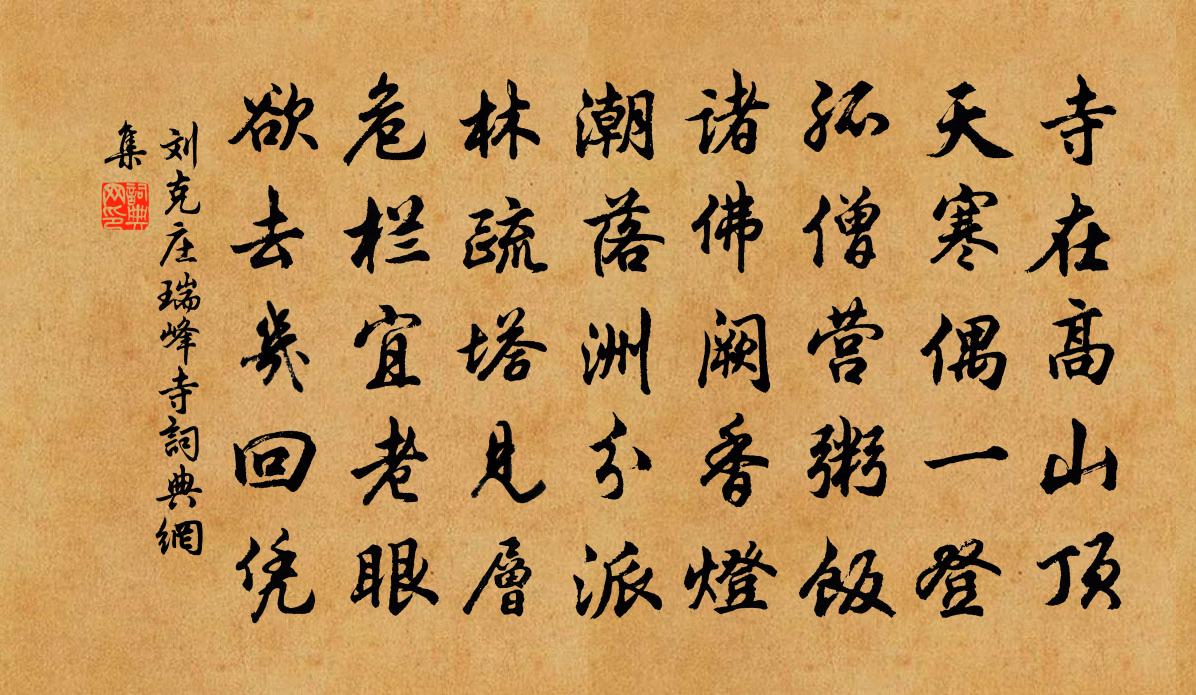 寺在高山顶
天寒偶一登
孤僧营粥饭
诸佛阙香燈
潮落洲分派
林疏塔见層
危栏宜老眼
欲去几回凭
刘克庄瑞峰寺詞典網
集
詞典网印